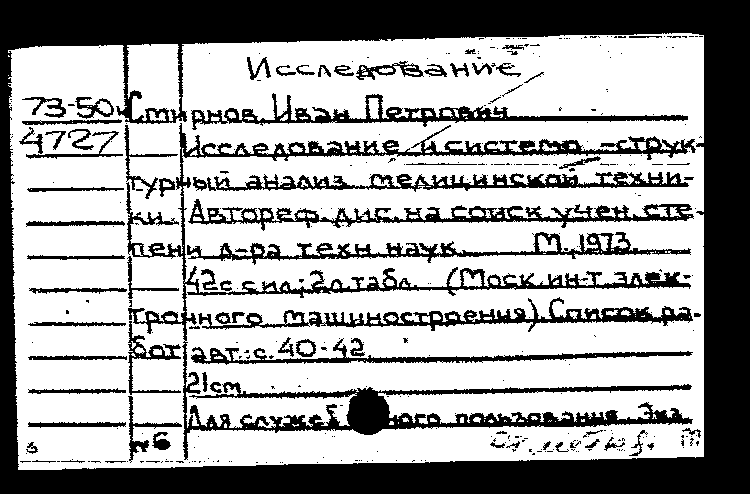 Исследование
73-50к Смирнов, Иван Петрович
4727 Исследование и системо-струк-
турный анализ медицинской техни-
ки. Автореф. дис. на соиск. учен. сте-
пени д-ра техн. наук. М., 1973.
42 с. с ил.; 2 л. табл. (Моск. ин-т элек-
тронного машиностроения). Список ра-
бот авт.: с. 40-42.
21 см.
Для служебного пользования. Экз.
б №6 т